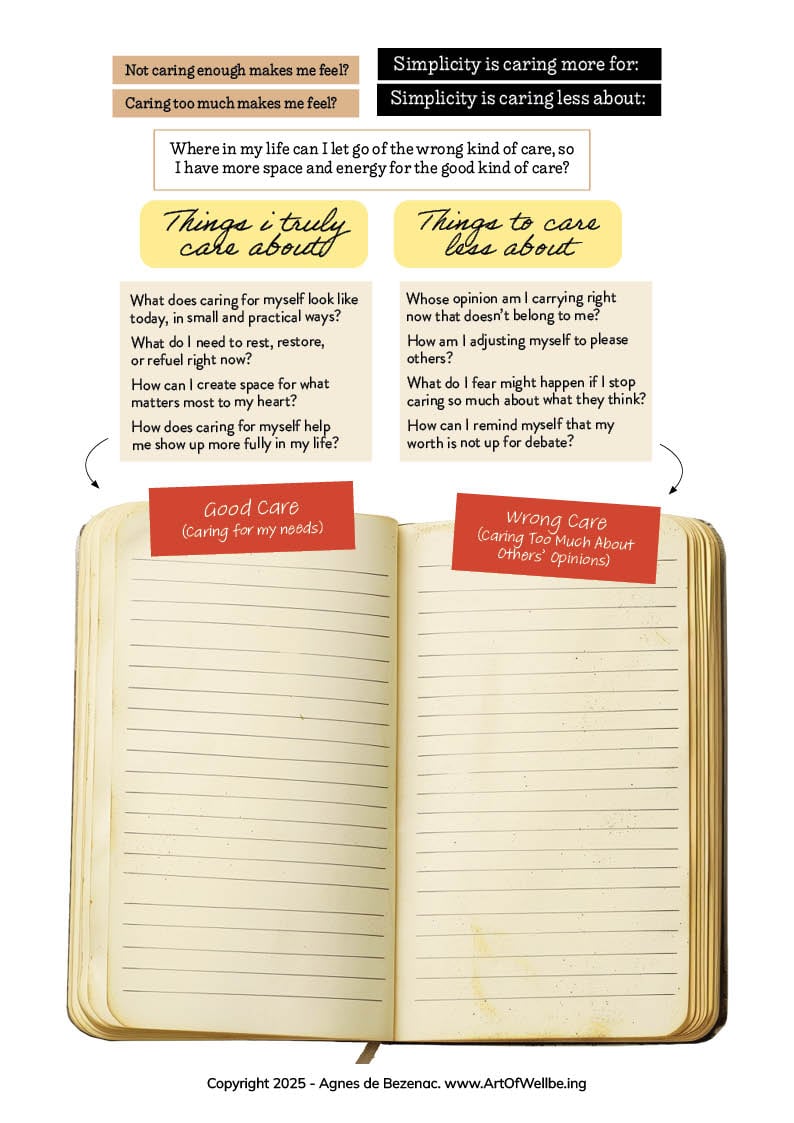 Not caring enough makes me feel?
Caring too much makes me feel?
Simplicity is caring more for:
Simplicity is caring less about:
Where in my life can I let go of the wrong kind of care, so
I have more space and energy for the good kind of care?
Things i truly
care about
What does caring for myself look like
today, in small and practical ways?
What do I need to rest, restore,
or refuel right now?
How can I create space for what
matters most to my heart?
How does caring for myself help
me show up more fully in my life?
Things to care
less about
Whose opinion am I carrying right
now that doesn't belong to me?
How am I adjusting myself to please
others?
What do I fear might happen if I stop
caring so much about what they think?
How can I remind myself that my
worth is not up for debate?
Good Care
(Caring for my needs)
Wrong Care
(Caring Too Much About
Others' Opinions)
Copyright 2025 - Agnes de Bezenac. www.ArtOfWellbe.ing